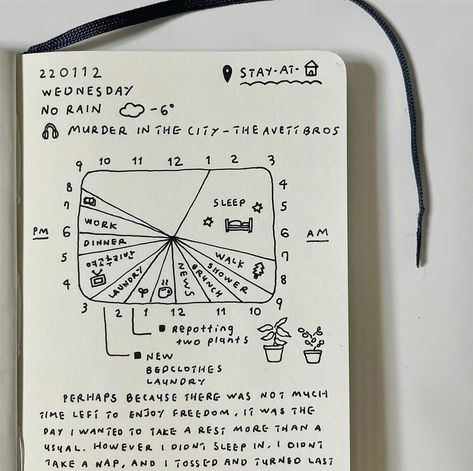 220112
STAY-AT-
WEDNESDAY
NO RAIN -6°
MURDER IN THE CITY - THE AVETT BROS
9 10 11 12 1 2 3
8 4
7 SLEEP 5
PM WORK 6
6 DINNER AM
5 여고추리반 WALK 7
4 LAUNDRY NEWS BRUNCH SHOWER 8
3 2 1 12 11 10 9
Repotting
two plants
NEW
BEDCLOTHES
LAUNDRY
PERHAPS BECAUSE THERE WAS NOT MUCH
TIME LEFT TO ENJOY FREEDOM, IT WAS THE
DAY I WANTED TO TAKE A REST MORE THAN A
USUAL. HOWEVER I DIDN'T SLEEP IN, I DIDN'T
TAKE A NAP, AND I TOSSED AND TURNED LAST